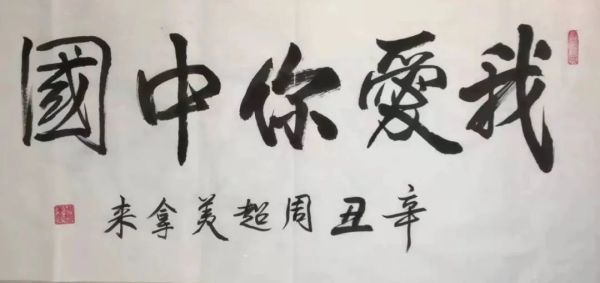 我愛你中國
辛丑周超美拿来